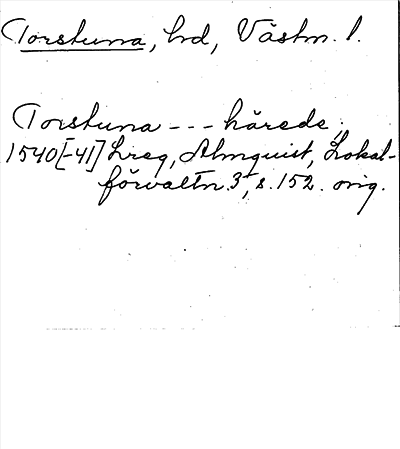 Torstuna, hd, Västm. l.
Torstuna --- härede
1540[-41] Lreg, Almquist, Lokal-
förvaltn. 3, s. 152. orig.